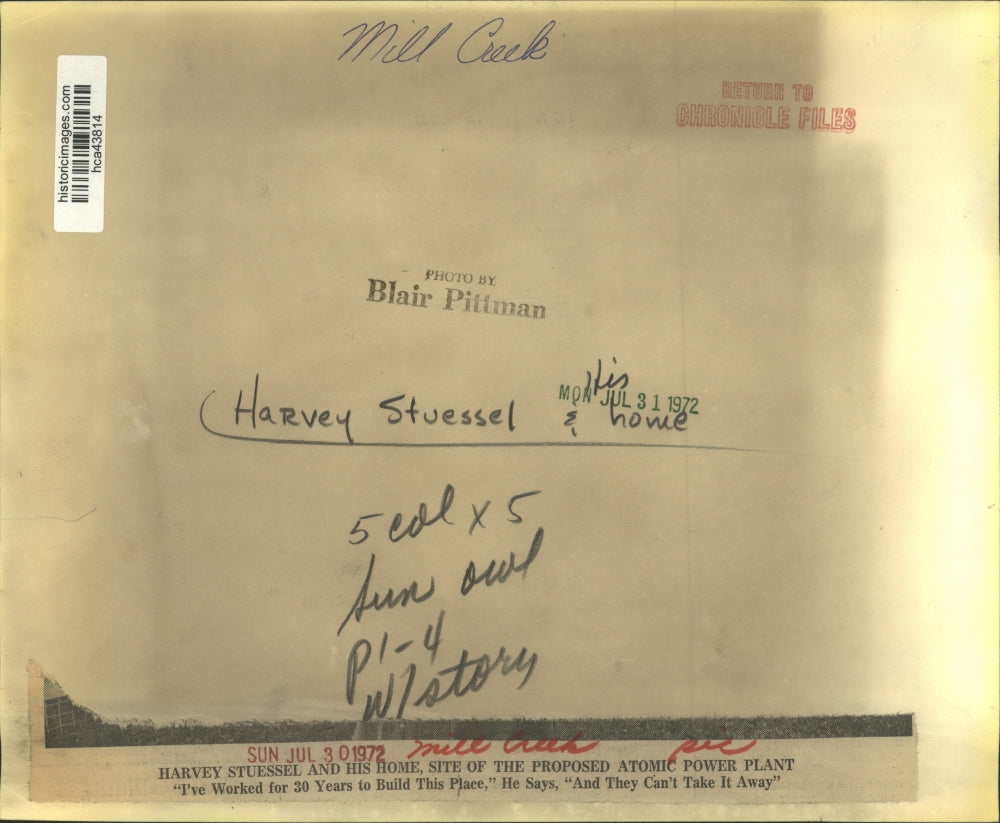 Mill Creek
RETURN TO
CHRONICLE FILES
historicimages.com
hca43814
PHOTO BY
Blair Pittman
Harvey Stuessel & His home
MON JUL 31 1972
5 col x 5
Sun owl
P1-4
w/story
SUN JUL 30 1972 mill Creek pic
HARVEY STUESSEL AND HIS HOME, SITE OF THE PROPOSED ATOMIC POWER PLANT
“I’ve Worked for 30 Years to Build This Place,” He Says, “And They Can’t Take It Away”